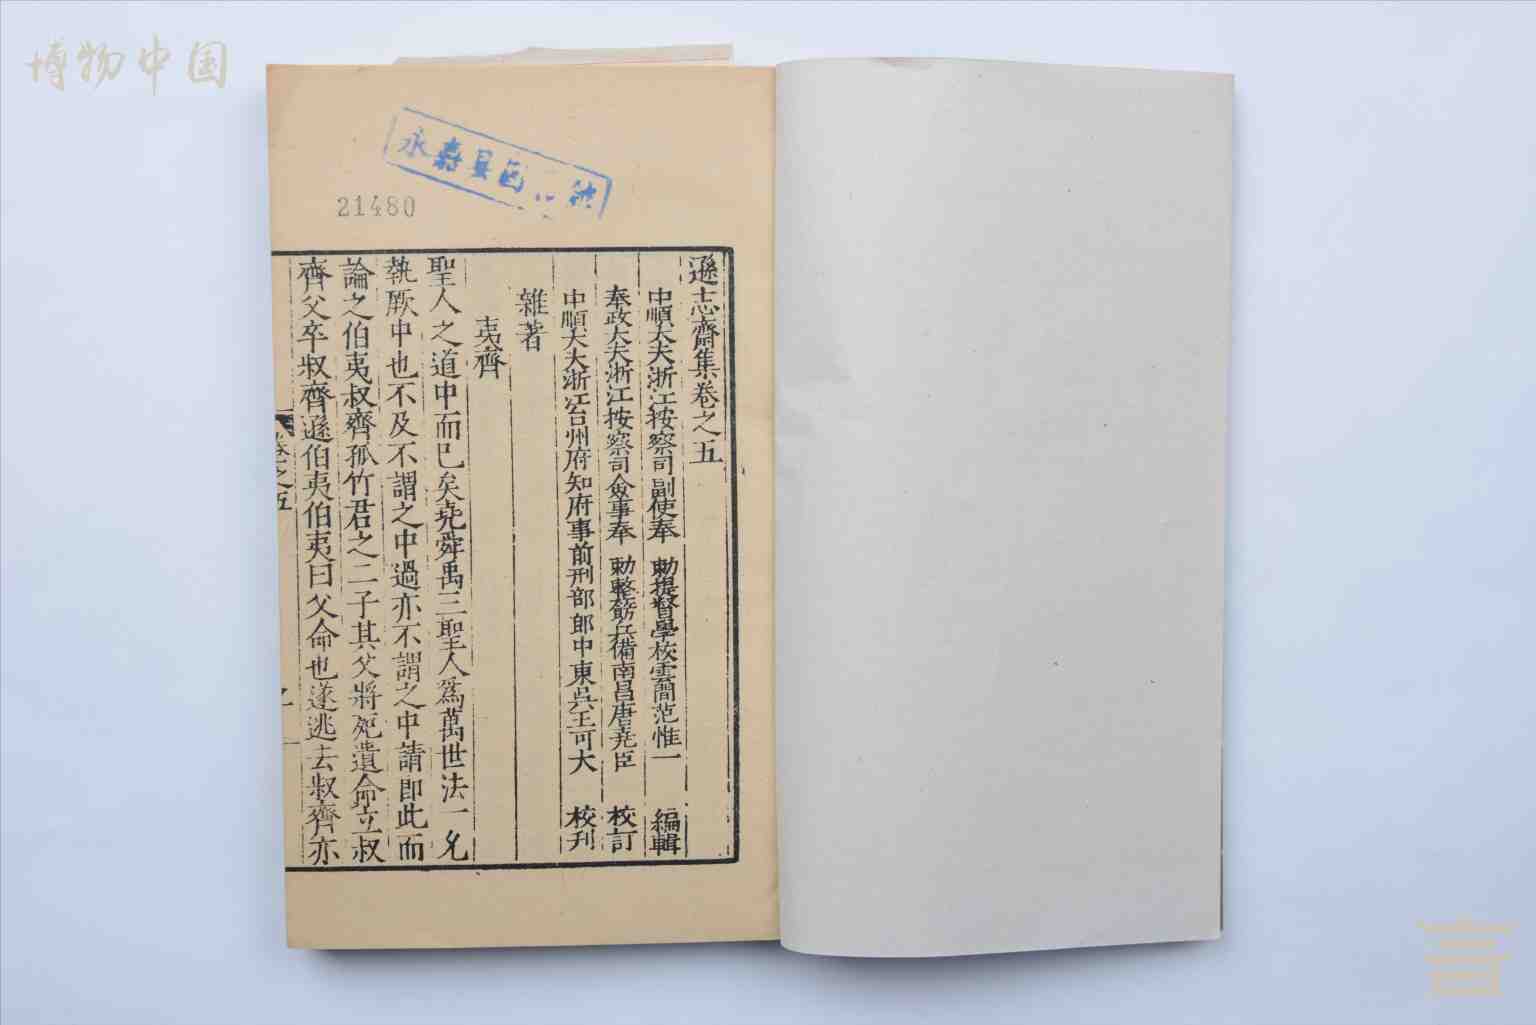 博物中国
21480
遜志齋集卷之五
中順大夫浙江按察司副使奉 勅提督學校雲間范惟一 編輯
奉政大夫浙江按察司僉事奉 勅整飭兵備南昌唐堯臣 校訂
中順大夫浙江台州府知府事前刑部郎中東吳王可大 校刊
雜著
夷齊
聖人之道中而已矣堯舜禹三聖人爲萬世法一允
執厥中也不及不謂之中過亦不謂之中請即此而
論之伯夷叔齊孤竹君之二子其父將死遺命立叔
齊父卒叔齊遜伯夷伯夷曰父命也遂逃去叔齊亦
卷之五
永壽县